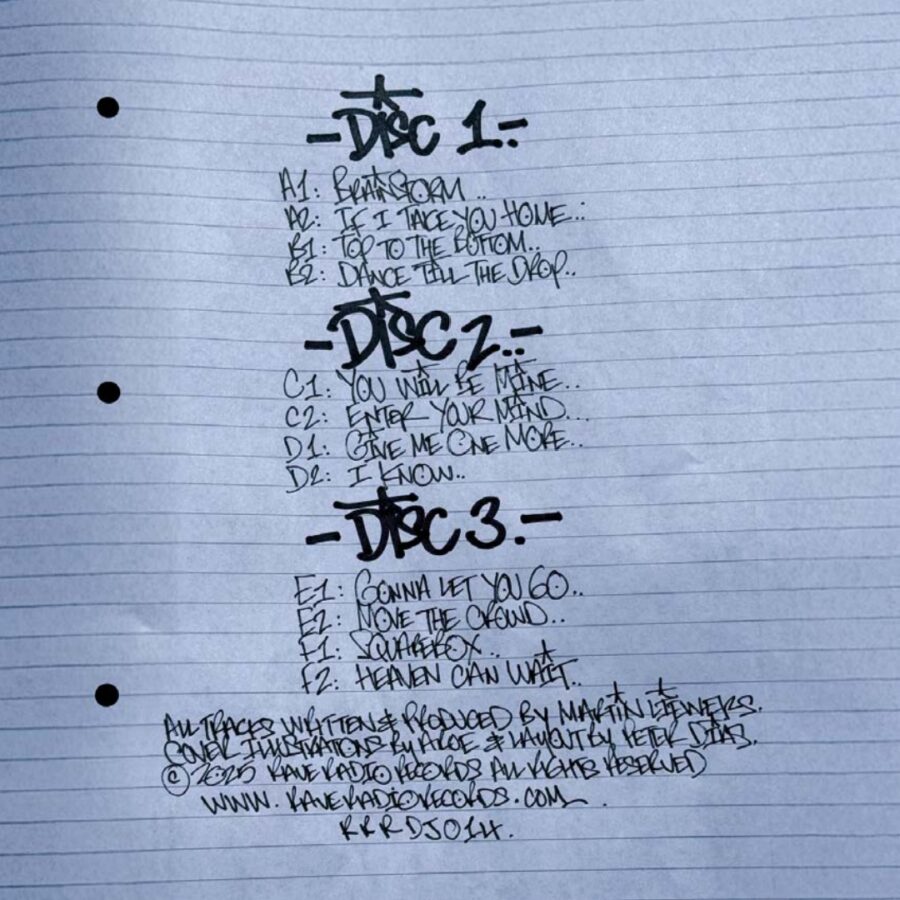 -DISC 1-
A1: BRAINSTORM..
A2: IF I TAKE YOU HOME..
B1: TOP TO THE BOTTOM..
B2: DANCE TILL THE DROP..
-DISC 2-
C1: YOU WILL BE MINE..
C2: ENTER YOUR MIND...
D1: GIVE ME ONE MORE..
D2: I KNOW..
-DISC 3.-
E1: GONNA LET YOU GO..
E2: MOVE THE CROWD..
F1: SQUAREBOX..
F2: HEAVEN CAN WAIT..
ALL TRACKS WRITTEN & PRODUCED BY MARTIN LIEWERS.
COVER ILLUSTRATIONS BY AROE & LAYOUT BY PETER DIAS.
© 2025 RAVE RADIO RECORDS ALL RIGHTS RESERVED
WWW.RAVERADIORECORDS.COM
RRRDJ014.